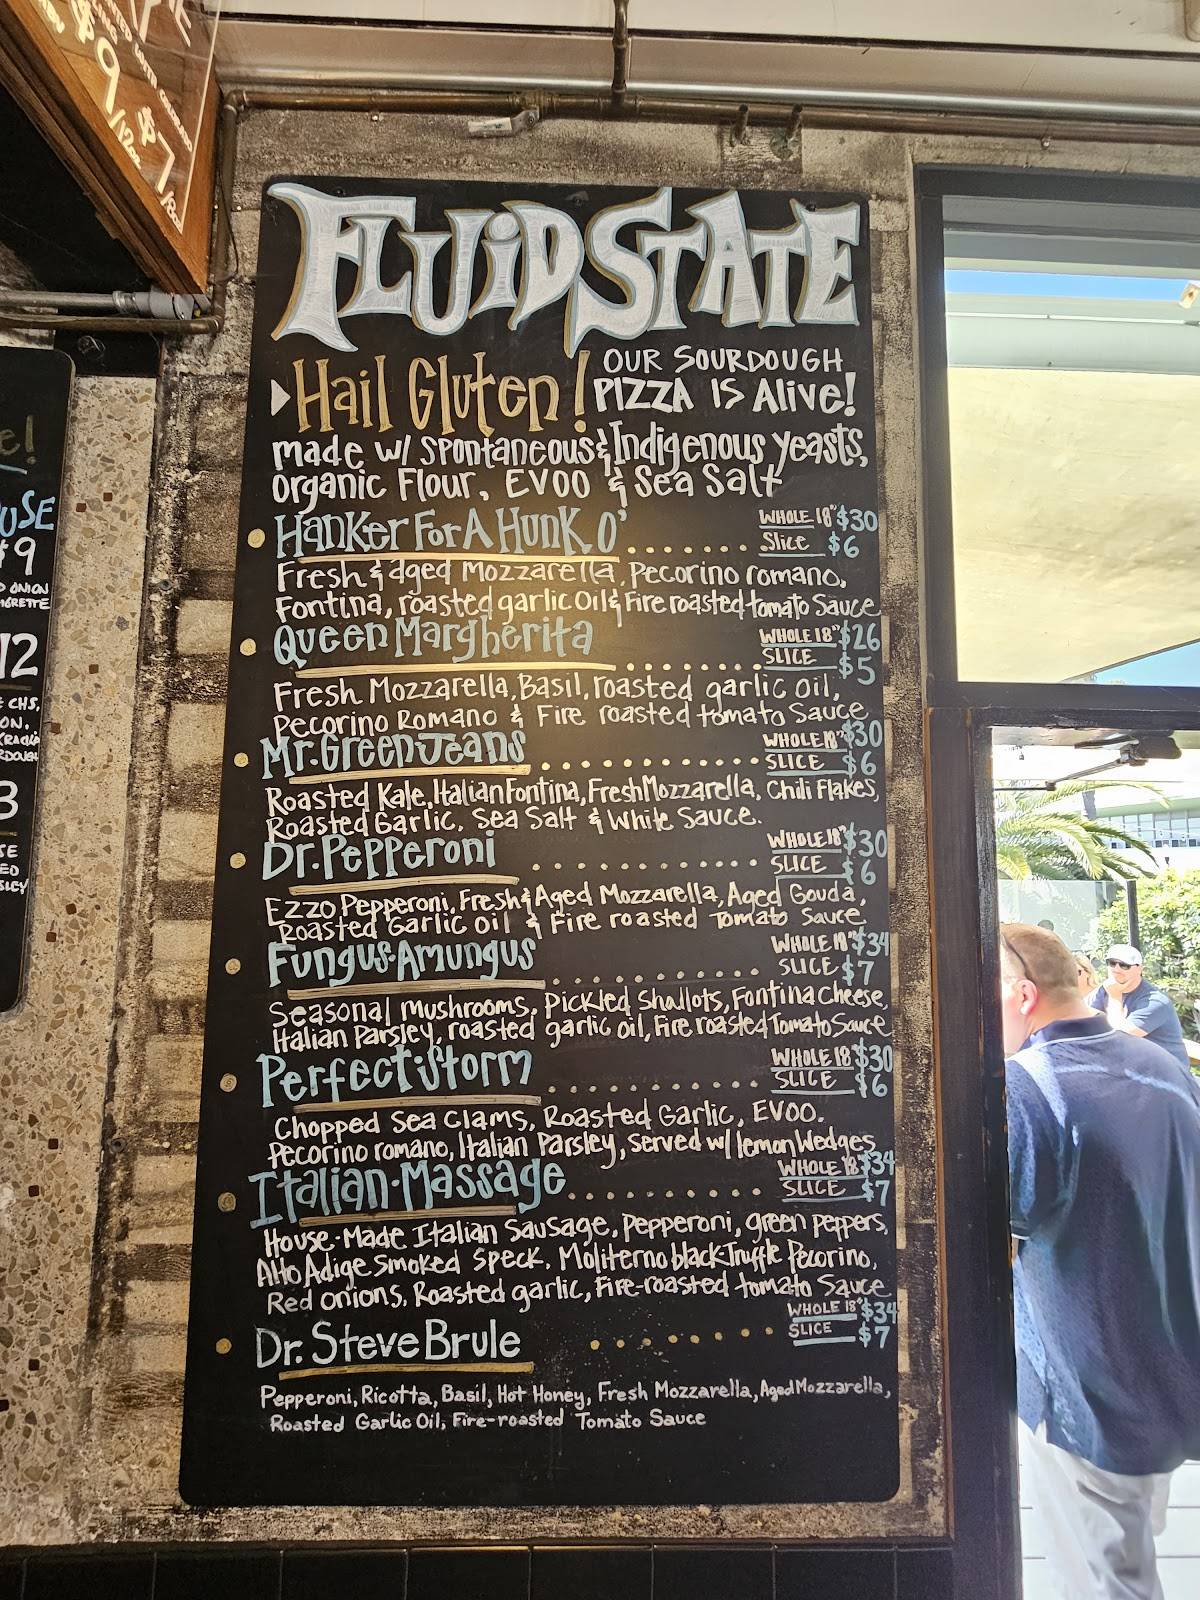 $9/12oz
$7/8oz
FLUID STATE
Hail Gluten! OUR SOURDOUGH
PIZZA IS Alive!
made w/ Spontaneous & Indigenous yeasts,
organic Flour, EVOO & Sea Salt
Hanker For A Hunk O' ....... WHOLE 18" $30
Slice $6
Fresh & aged Mozzarella, Pecorino romano,
Fontina, roasted garlic Oil & Fire roasted tomato Sauce
Queen Margherita ....... WHOLE 18" $26
SLICE $5
Fresh Mozzarella, Basil, roasted garlic oil,
Pecorino Romano & Fire roasted tomato Sauce
Mr. Green Jeans ........... WHOLE 18" $30
SLICE $6
Roasted Kale, Italian Fontina, Fresh Mozzarella, Chili Flakes,
Roasted Garlic, Sea Salt & White Sauce.
Dr. Pepperoni ........... WHOLE 18" $30
SLICE $6
Ezzo Pepperoni, Fresh & Aged Mozzarella, Aged Gouda,
Roasted Garlic Oil & Fire roasted Tomato Sauce
Fungus·Amungus .......... WHOLE 18" $34
SLICE $7
Seasonal mushrooms, Pickled Shallots, Fontina Cheese,
Italian Parsley, roasted garlic oil, Fire roasted Tomato Sauce
Perfect Storm ........... WHOLE 18" $30
SLICE $6
Chopped Sea Clams, Roasted Garlic, EVOO.
Pecorino romano, Italian Parsley, served w/ lemon Wedges
Italian·Massage .......... WHOLE 18" $34
SLICE $7
House-Made Italian Sausage, Pepperoni, green peppers,
Alto Adige Smoked Speck, Moliterno black-Truffle Pecorino,
Red onions, Roasted garlic, Fire-roasted tomato Sauce
Dr. Steve Brule ....... WHOLE 18" $34
SLICE $7
Pepperoni, Ricotta, Basil, Hot Honey, Fresh Mozzarella, Aged Mozzarella,
Roasted Garlic Oil, Fire-roasted Tomato Sauce